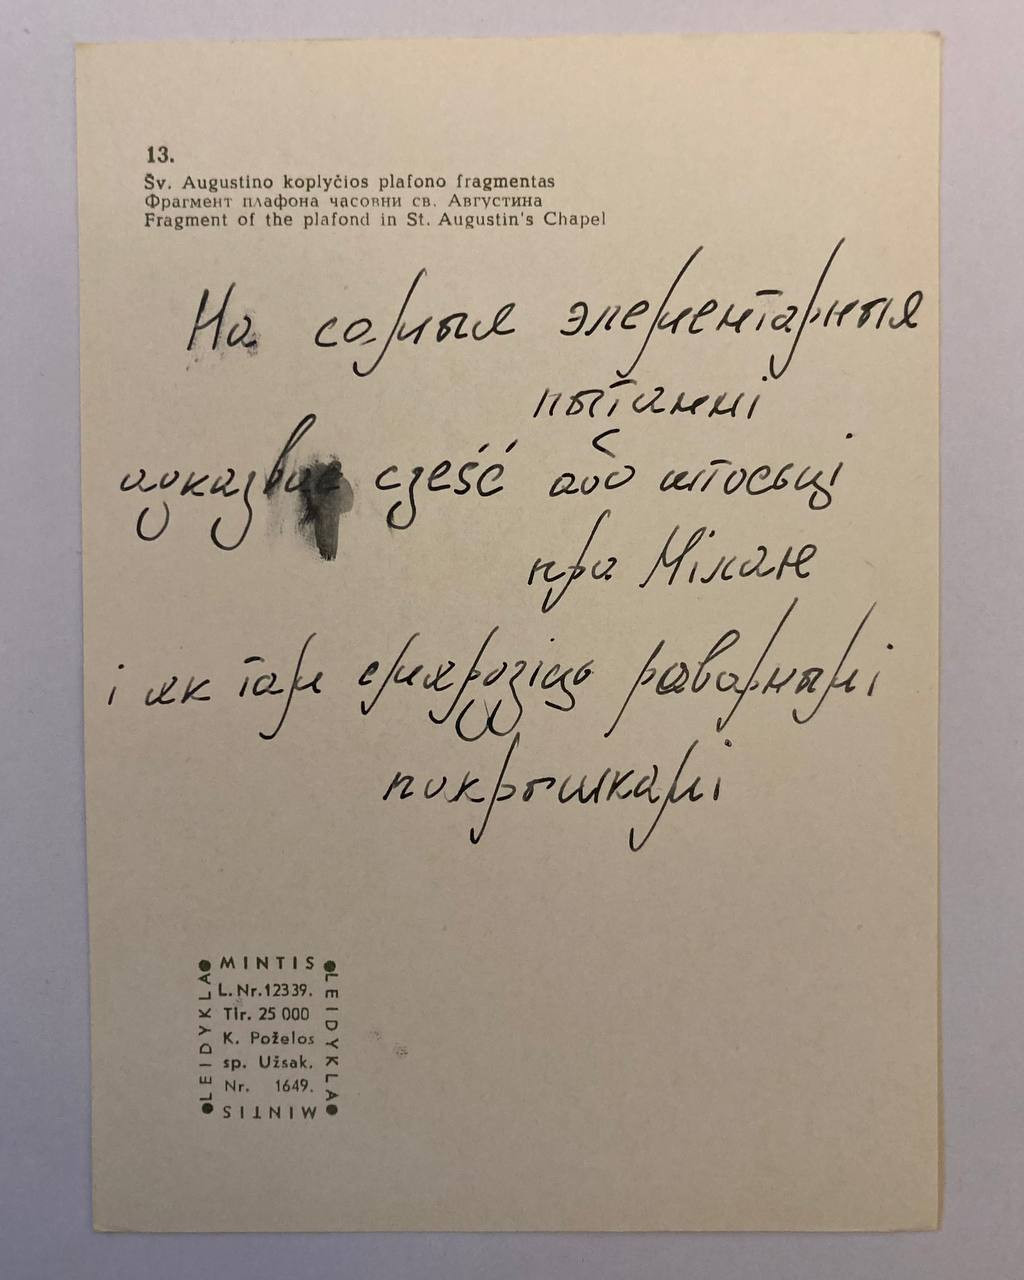 13.
Šv. Augustino koplyčios plafono fragmentas
Фрагмент плафона часовни св. Августина
Fragment of the plafond in St. Augustin's Chapel
На самыя элементарныя
пытанні
адказвае cześć або штосьці
пра Мілан
і як там смярдзіць роварнымі
пакрышкамі
MINTIS
LEIDYKLA
L. Nr. 12339.
Tir. 25 000
K. Poželos
sp. Užsak.
Nr. 1649.
LEIDYKLA
MINTIS